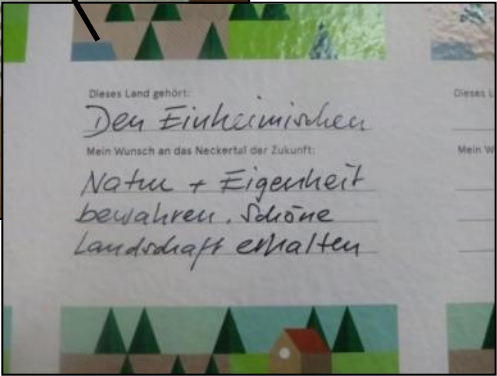 Dieses Land gehört:
Den Einheimischen
Mein Wunsch an das Neckertal der Zukunft:
Natur + Eigenheit
bewahren. Schöne
Landschaft erhalten
Dieses L
Mein W